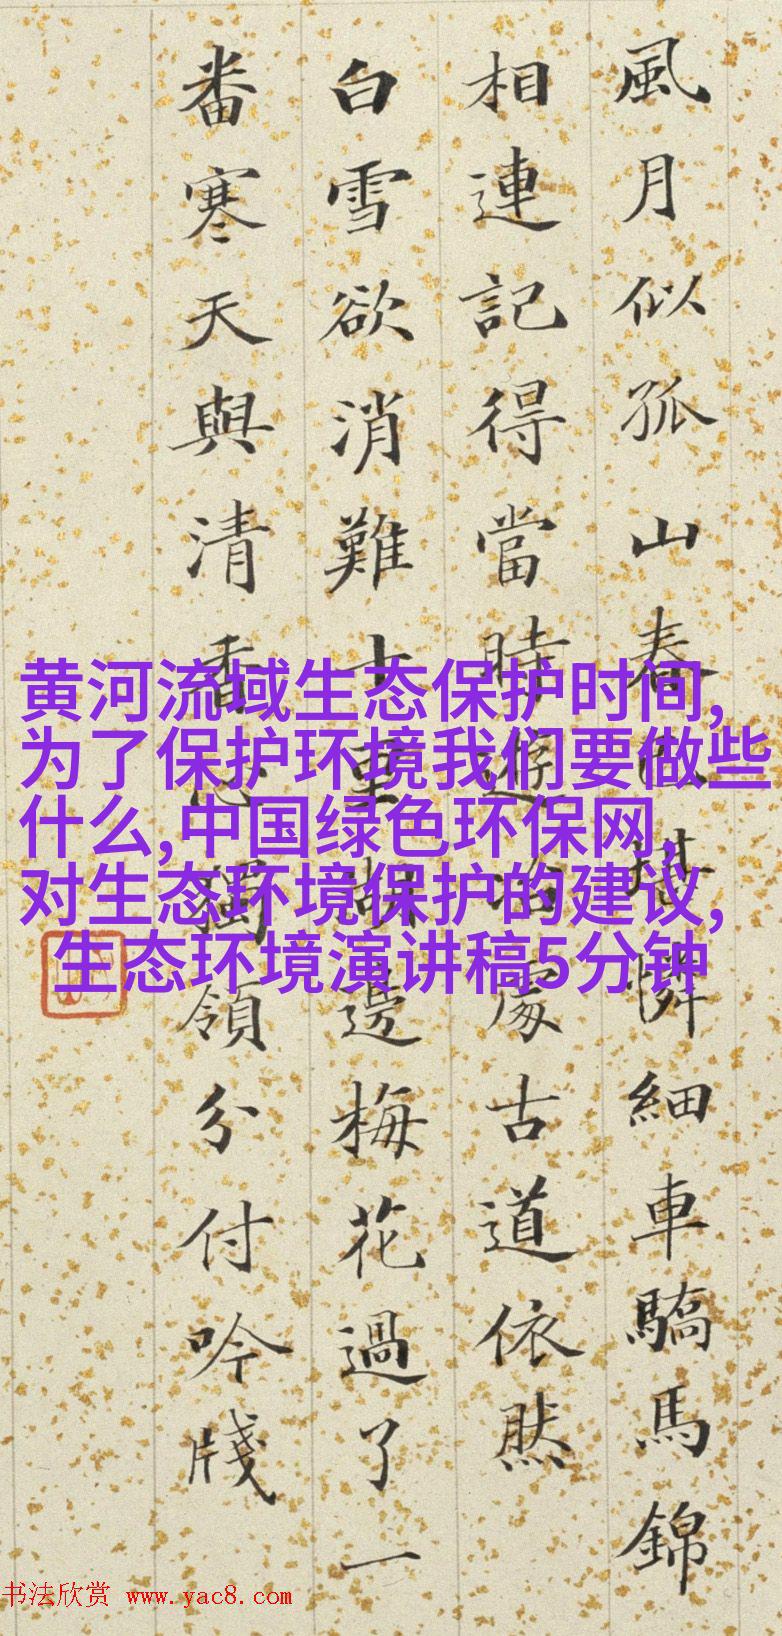 風月似孤山春堪憐細車驕馬錦
相連記得當時遊處古道依然
白雪欲消難十里湖邊梅花過了一
番寒天與清香心獨領分付吟牋
黄河流域生态保护时间,
为了保护环境我们要做些
什么,中国绿色环保网,
对生态环境保护的建议,
生态环境演讲稿5分钟
书法欣赏 www.yac8.com